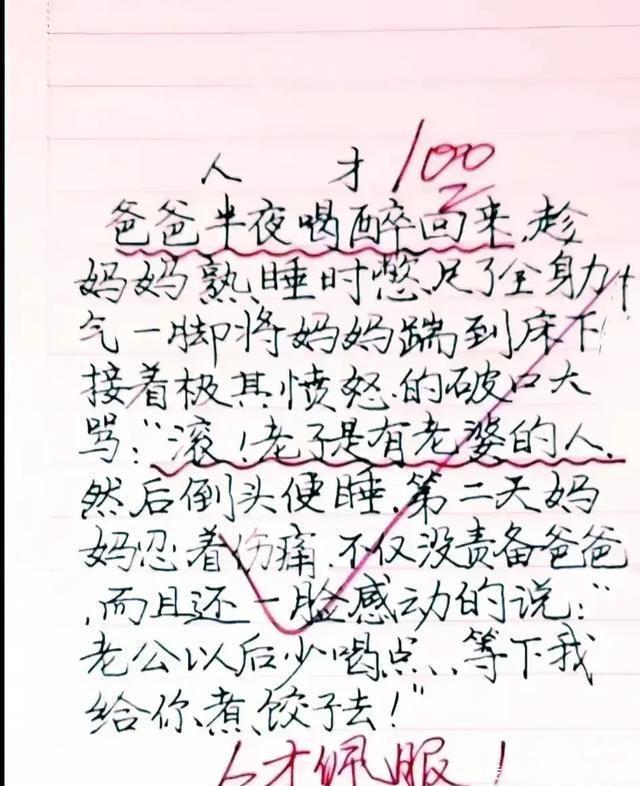 人才 100
爸爸半夜喝醉回来,趁
妈妈熟睡时憋足了全身力
气一脚将妈妈踹到床下
接着极其愤怒的破口大
骂:“滚!老子是有老婆的人,
然后倒头便睡,第二天妈
妈忍着伤痛,不仅没责备爸爸
,而且还一脸感动的说:“
老公以后少喝点、等下我
给你煮饺子去!”
人才佩服!